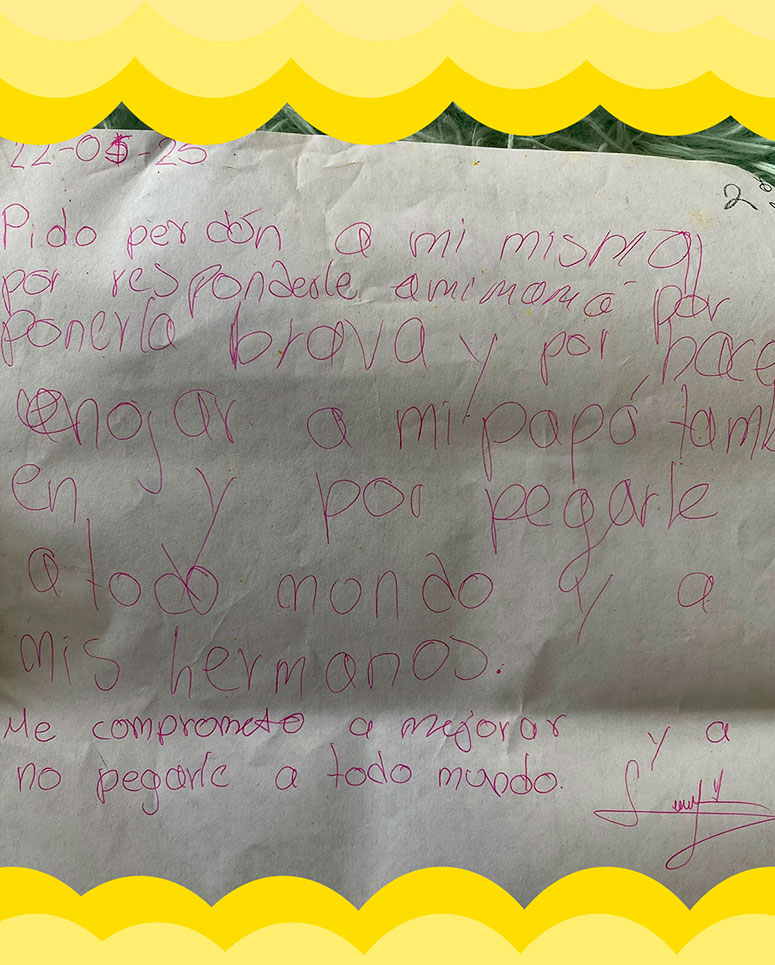 22-05-25
2
Pido perdón a mi misma
por responderle a mi mamá por
ponerla brava y por hace
enojar a mi papá tamb
en y por pegarle
a todo mondo y a
mis hermanos.
Me comprometo a mejorar y a
no pegarle a todo mundo.